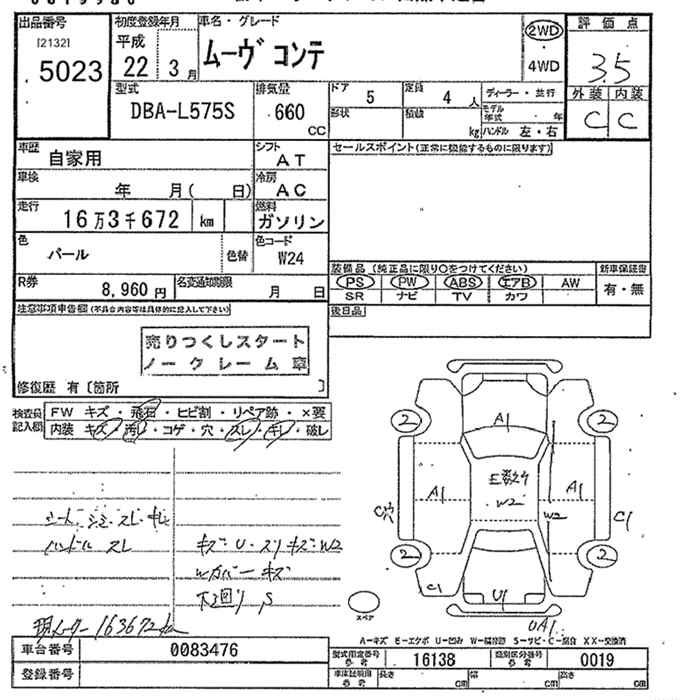 出品番号
[2132]
5023
初度登録年月
平成
22 3月
車名・グレード
ムーヴ コンテ
2WD
4WD
評価点
3.5
外装 内装
C C
型式
DBA-L575S
排気量
660
CC
ドア
5
定員
4 人
形状
積載
kg
ディーラー・並行
モデル年式 年
ハンドル 左・右
車歴
自家用
シフト
AT
車検
年 月( 日)
冷房
AC
走行
16万3千672 km
燃料
ガソリン
色
パール
色替
色コード
W24
R券
8,960円
名変通知期限
月 日
セールスポイント(正常に機能するものに限ります)
装備品 (純正品に限り○をつけてください)
PS PW ABS エアB AW
SR ナビ TV カワ
新車保証書
有・無
後日品
注意事項申告欄(不具合内容等は具体的に記入して下さい)
売りつくしスタート
ノークレーム車
修復歴 有〔箇所 〕
検査員記入欄
FW キズ・飛石・ヒビ割・リペア跡・×要
内装 キズ・汚レ・コゲ・穴・スレ・キレ・破レ
シート シミ スレ キレ
ハンドル スレ
キズ・U・スリキズ W2
Wカバー キズ
下廻り S
現メーター 163672km
2
2
A1
E数ヶ
W2
A1
A1
W2
C穴
C1
2
2
C1
U1
UA1
スペア
A-キズ E-エクボ U-凹み W-補修跡 S-サビ・C-腐食 XX-交換済
車台番号
0083476
登録番号
型式指定番号
参考
16138
類別区分番号
参考
0019
車庫証明用
参考
長さ cm
幅 cm
高さ cm